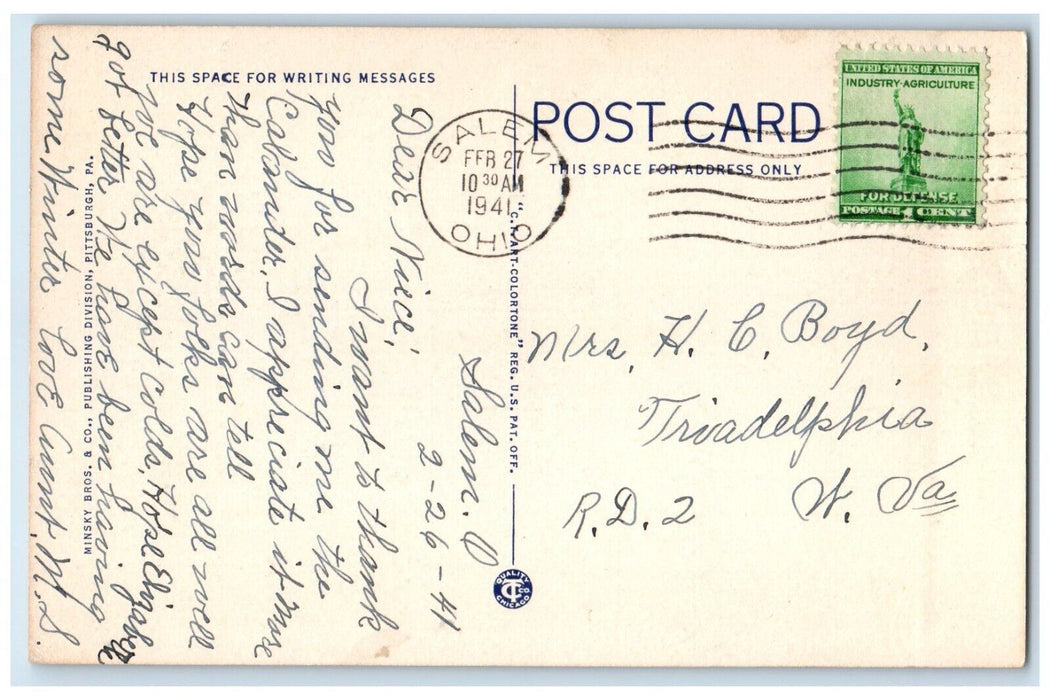 THIS SPACE FOR WRITING MESSAGES
POST CARD
THIS SPACE FOR ADDRESS ONLY
UNITED STATES OF AMERICA
INDUSTRY·AGRICULTURE
FOR DEFENSE
POSTAGE 1 CENT
SALEM
FEB 27
10 30 AM
1941
OHIO
Salem. O
2-26-41
Dear Niece,
I want to thank
you for sending me the
Calander, I appreciate it more
than words can tell
Hope you folks are all well
we are except colds, Hope Elizabeth
got better We have been having
some Winter Love Aunt, M. S.
Mrs, H. C. Boyd,
Triadelphia
R.D. 2 W. Va
MINSKY BROS. & CO., PUBLISHING DIVISION, PITTSBURGH, PA.
"C.T. ART-COLORTONE" REG. U.S. PAT. OFF.
QUALITY
CTCO
CHICAGO